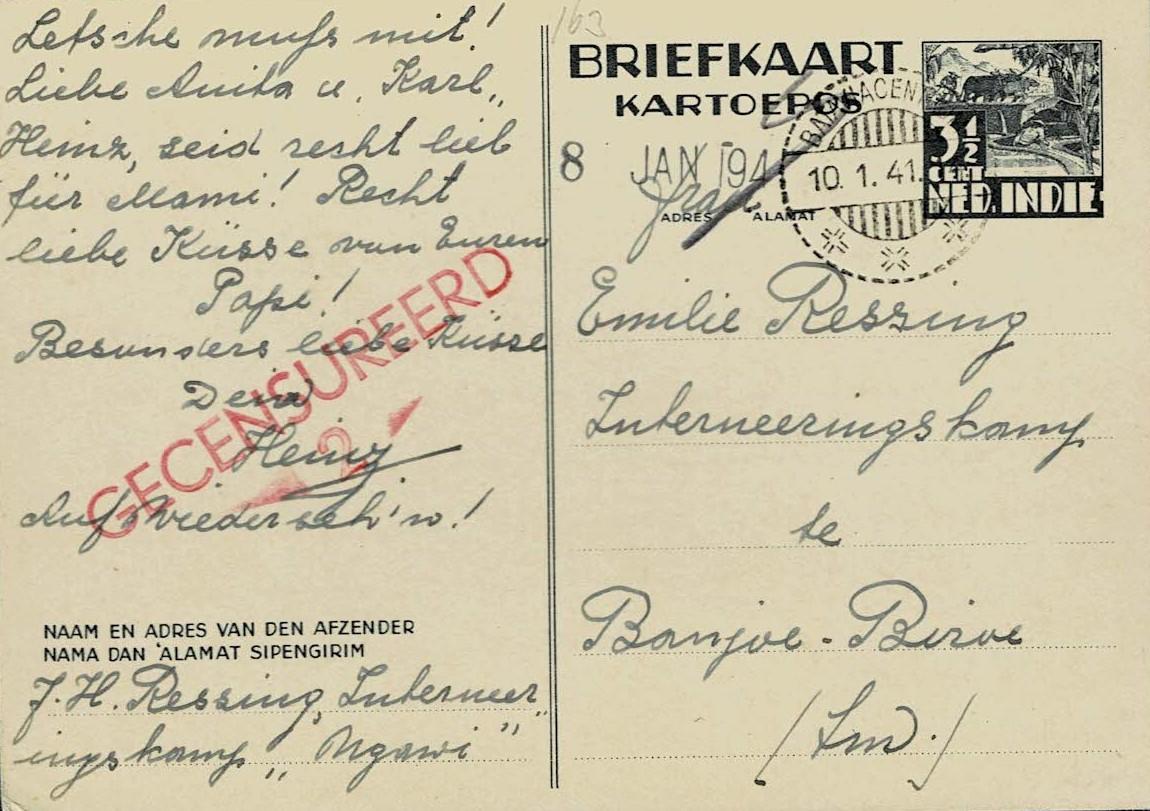 Letsche muß mit!
Liebe Anita u. Karl,,
Heinz, seid recht lieb
für Mami! Recht
liebe Küsse von Euren
Papi!
Besonders liebe Küsse
Dein
Heinz
Auf Wiederseh'n!
GECENSUREERD
2
NAAM EN ADRES VAN DEN AFZENDER
NAMA DAN 'ALAMAT SIPENGIRIM
J. H. Ressing, Interneer„
ingskamp „Ngawi"
163
BRIEFKAART
KARTOEPOS
3½
CENT
NED. INDIE
8 JAN 194
10. 1. 41.
ADRES ALAMAT
Frau
Emilie Ressing
Interneeringskamp
te
Banjoe-Biroe